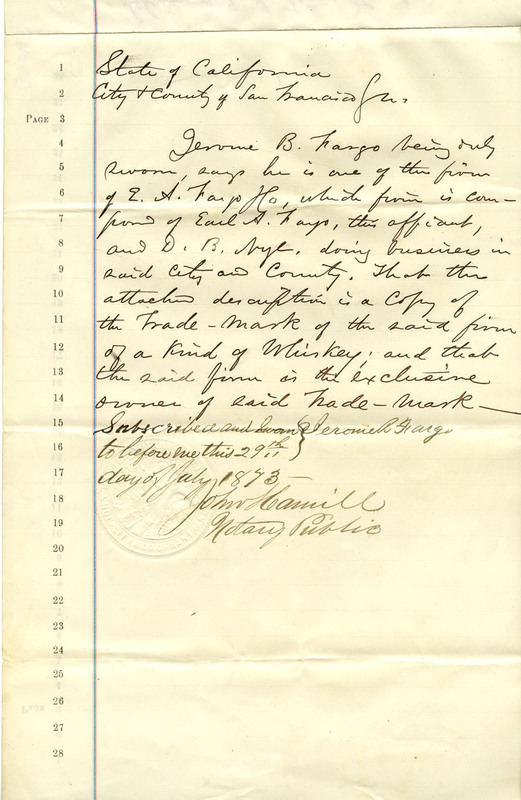 1 State of California
2 City & County of San Francisco } ss.
PAGE 3
4 Jerome B. Fargo being duly
5 sworn, says he is one of the firm
6 of E. A. Fargo & Co, which firm is com-
7 posed of Earl A. Fargo, this affiant,
8 and D. B. Nye. doing business in
9 said City and County. That the
10 attached description is a Copy of
11 the Trade-Mark of the said firm
12 of a Kind of Whiskey; and that
13 the said firm is the exclusive
14 owner of said Trade-Mark—
15 Subscribed and Sworn } Jerome B. Fargo
16 to before me this 29th
17 day of July 1873
18 John Hamill
19 Notary Public
20
21
22
23
24
25
26
27
28